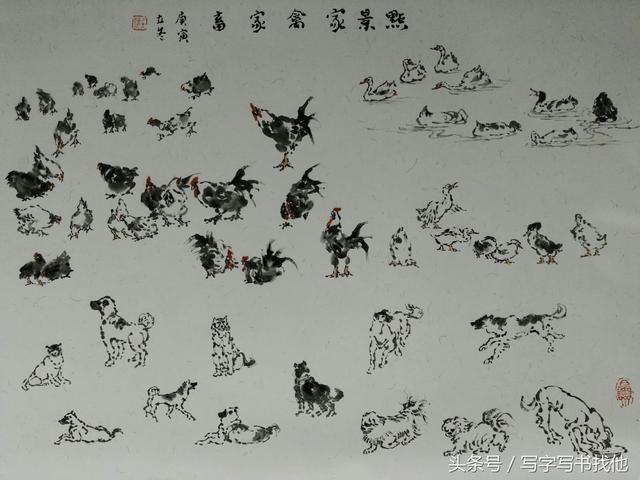 點景家禽家畜
庚寅
立冬
头条号 / 写字写书找他